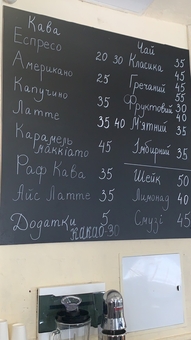 Кава
Еспресо 20 30
Американо 25
Капучино 35
Латте 35 40
Карамель маккіато 45
Раф Кава 35
Айс Латте 35
Додатки 5
Какао-30
Чай
Класика 35
45
Гречаний 45
55
Фруктовий 30
40
М'ятний 35
Імбирний 35
Шейк 50
Лимонад 40
Смузі 45